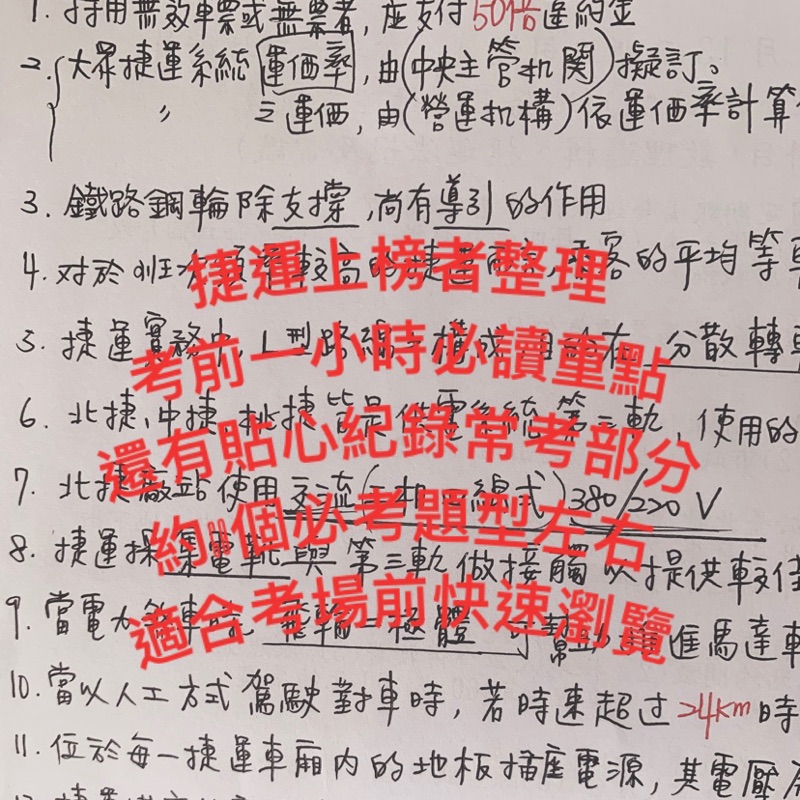 1. 持用無效車票或無票者,應支付50倍違約金
2. 大眾捷運系統運価率,由(中央主管机関)擬訂。
〃 之運価,由(營運机構)依運価率計算
3. 鐵路鋼輪除支撐,尚有導引的作用
4. 对於班次頻率較高的捷運 的平均等
捷運上榜者整理
5. 捷運實務中,L型路線 分散轉
考前一小時必讀重點
6. 北捷、中捷、桃捷皆是供電系統第三軌,使用的
還有貼心紀錄常考部分
7. 北捷廠站使用交流(三相 線式)380/220V
約 個必考題型左右
8. 捷運採集電靴與第三軌做接觸以提供較佳
適合考場前快速瀏覽
9. 當電力 車 飛輪二極體可幫助 進馬達
10. 當以人工方式駕駛對車時,若時速超过24km時
11. 位於每一捷運車廂内的地板插座電源,其電壓